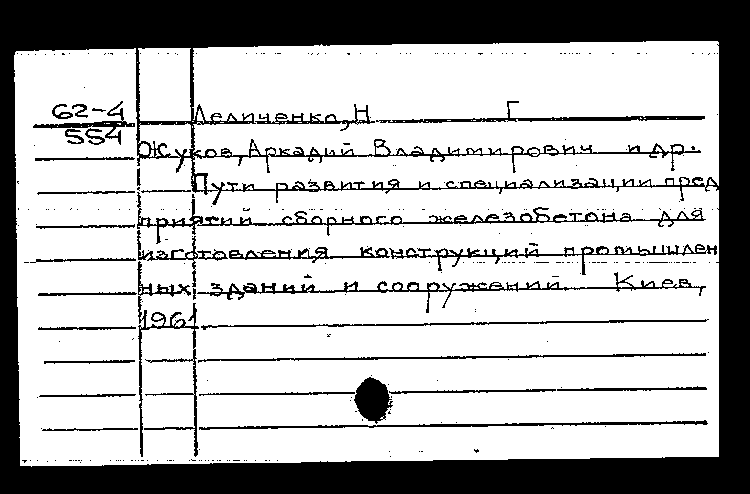 62-4 Леличенко, Н Г
554
Жуков, Аркадий Владимирович и др.
Пути развития и специализации пред
приятий сборного железобетона для
изготовления конструкций промышлен
ных зданий и сооружений. Киев,
1961.